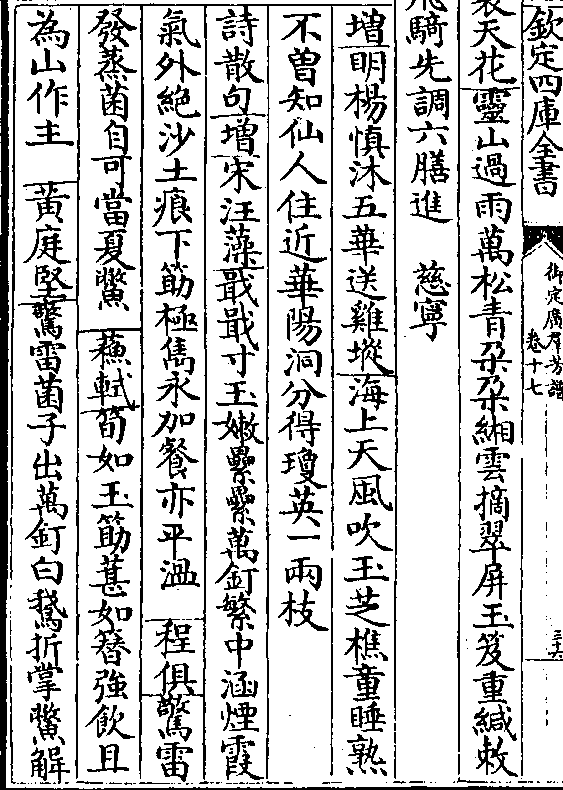 欽定四庫全書
御定廣羣芳譜
卷十七
天花靈山過雨萬松青朶朶緗雲摘翠屏玉笈重緘敕
飛騎先調六膳進 慈寧
增明楊慎沐五華送雞㙡海上天風吹玉芝樵童睡熟
不曾知仙人住近華陽洞分得瓊英一兩枝
詩散句增宋汪藻戢戢寸玉嫩纍纍萬釘繁中涵煙霞
氣外絶沙土痕下筯極雋永加餐亦平溫 程俱驚雷
發蒸菌自可當夏鱉 蘇軾筍如玉筯葚如簪強飲且
為山作主 黃庭堅驚雷菌子出萬釘白鵝折掌鱉解